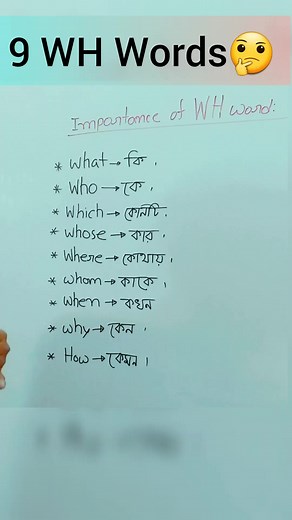 9 WH Words🤔
Importance of WH word:
* What → কি ।
* Who → কে ।
* Which → কোনটি ।
* Whose → কার ।
* Where → কোথায় ।
* whom → কাকে ।
* When → কখন
* why → কেন ।
* How → কেমন ।